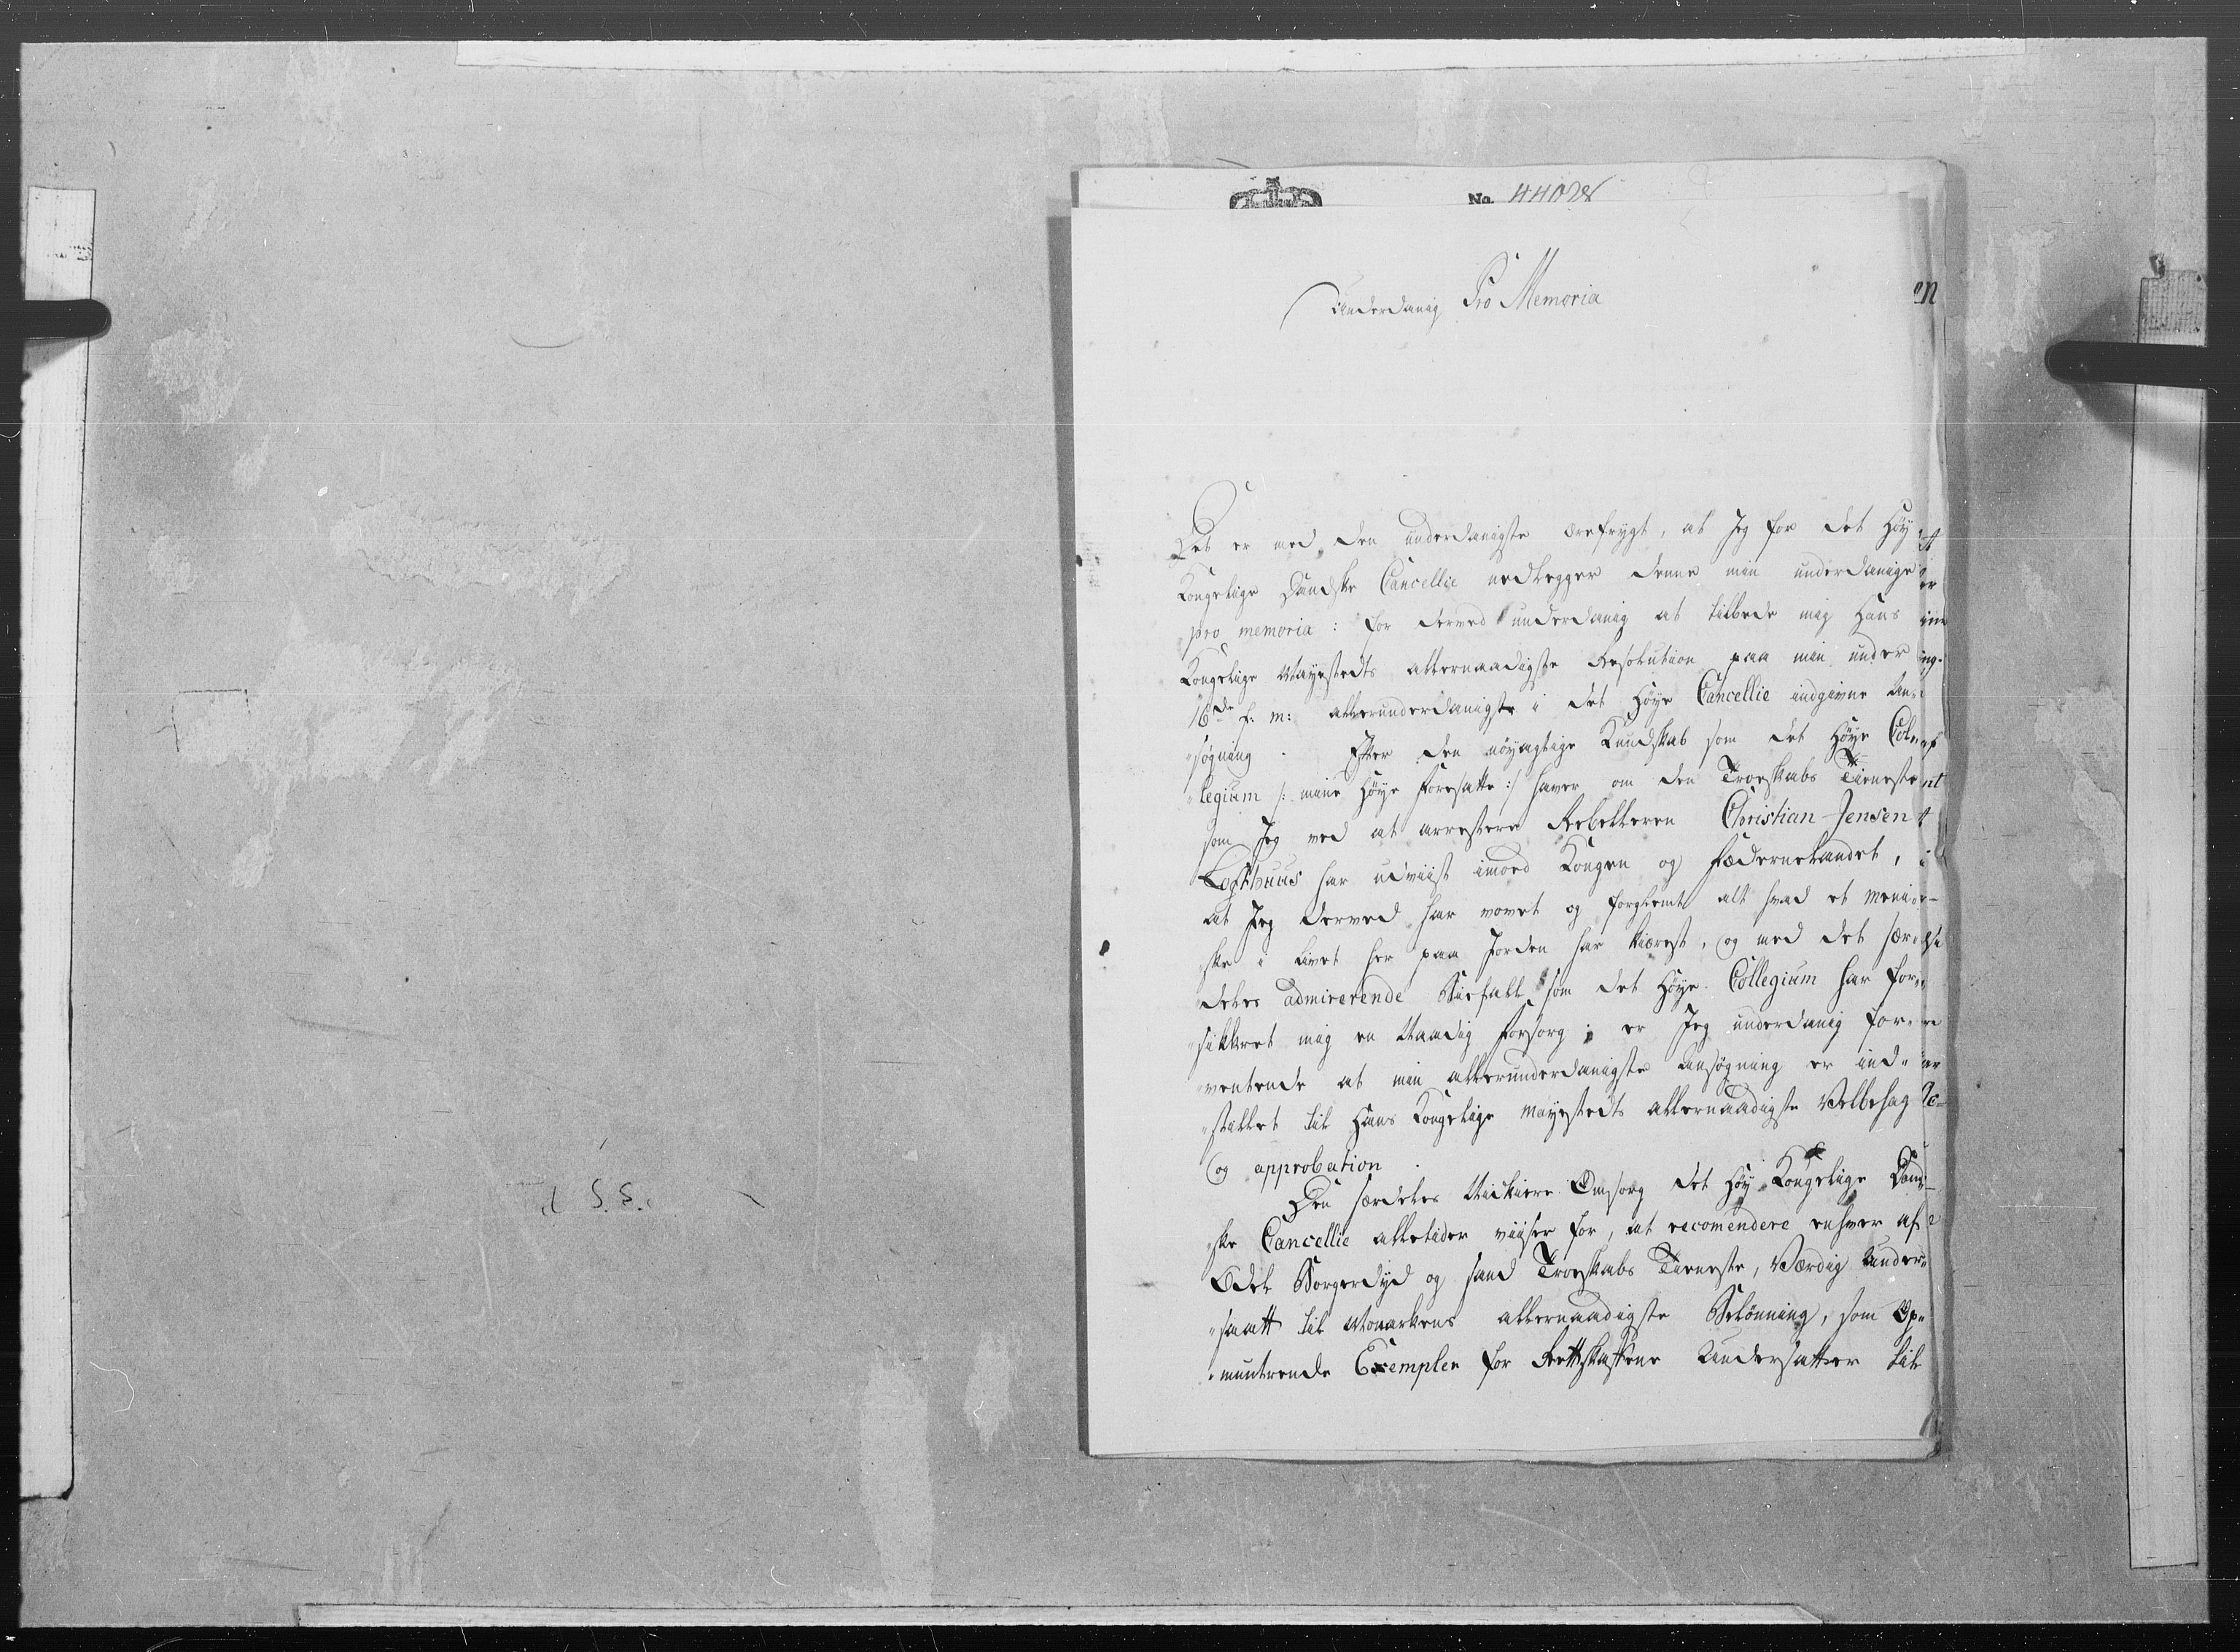 No. 44028
Underdanig Pro Memoria
Det er med den underdanigste ærefrygt, at Jeg for det Höy
Kongelige Danske Cancellie nedlegger denne min underdanige
pro memoria: for derved underdanig at udbede mig Hans
Kongelige Mayestedts allernaadigste Resolution paa min under
16de f: m: allerunderdanigste i det Höye Cancellie indgivne Ans-
"søgning. Efter den nöyagtige Kundskab som det Höye Col-
"legium /: mine Höye Foresatte :/ haver om den Troeskabs Tieneste
som Jeg ved at arrestere Rebelleren Christian Jensen
Lofthuus har udviist imod Kongen og Fædernelandet,
at Jeg derved har vovet og forglemt alt hvad et menie-
"ske i Livet her paa Jorden har kiærest, og med det sær-
"deles admirerende Biefald som det Höye Collegium har for-
"sikkret mig en Naadig Forsorg; er Jeg underdanig for-
"ventende at min allerunderdanigste Ansøgning er ind-
"stillet til Hans Kongelige Mayestedts allernaadigste Velbehag
og approbation.
Den særdeles Omsorg det Höy Kongelige Dan-
"ske Cancellie alletider viiser for, at recomendere enhver af
Ædel Borgerdyd og sand Troeskabs Tieneste, Værdig Under-
"saatt til Monarkens allernaadigste Belønning, som Op-
"muntrende Exempler for Rettskaffene Undersatter til
S. S.